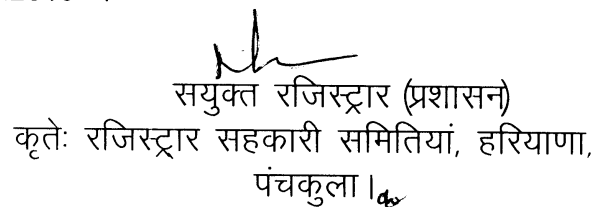 सयुक्त रजिस्ट्रार (प्रशासन)
कृतेः रजिस्ट्रार सहकारी समितियां, हरियाणा,
पंचकुला।